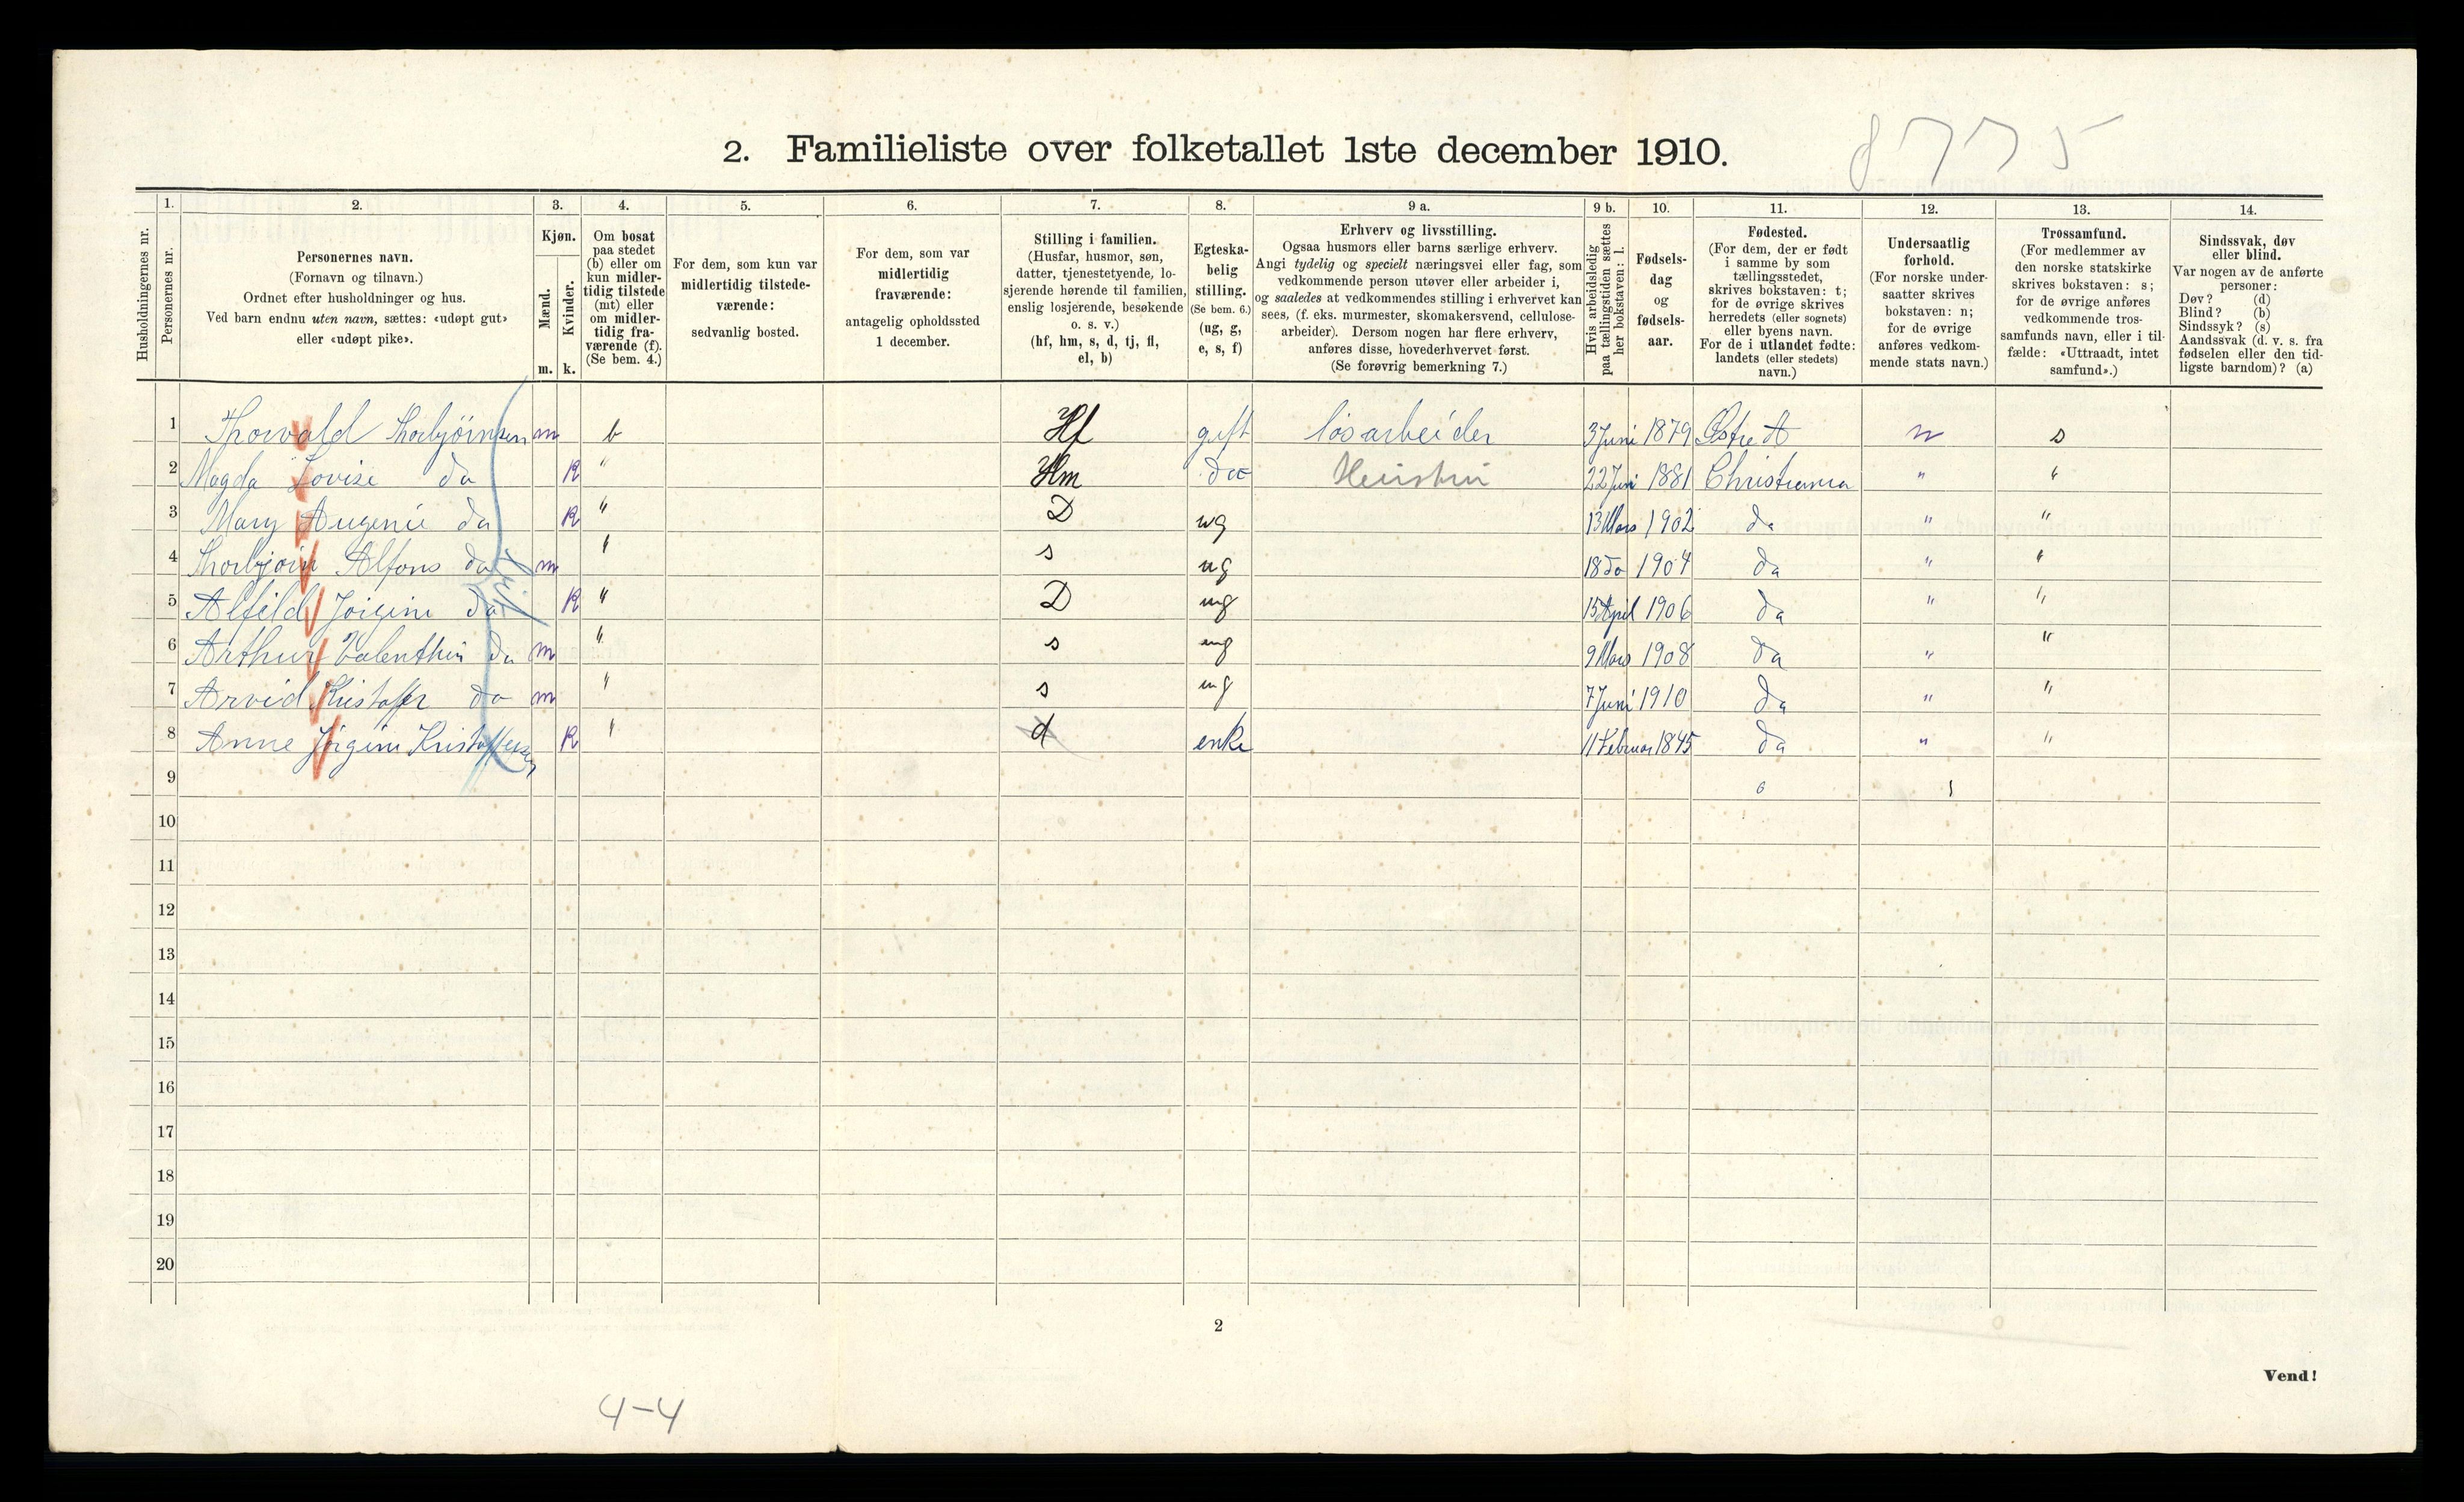 8775
2. Familieliste over folketallet 1ste december 1910.
1. 2. 3. 4. 5. 6. 7. 8. 9 a. 9 b. 10. 11. 12. 13. 14.
Husholdningernes nr.
Personernes nr.
Personernes navn.
(Fornavn og tilnavn.)
Ordnet efter husholdninger og hus.
Ved barn endnu uten navn, sættes: «udøpt gut»
eller «udøpt pike».
Kjøn.
Mænd.
Kvinder.
m. k.
Om bosat
paa stedet
(b) eller om
kun midler-
tidig tilstede
(mt) eller
om midler-
tidig fra-
værende (f).
(Se bem. 4.)
For dem, som kun var
midlertidig tilstede-
værende:
sedvanlig bosted.
For dem, som var
midlertidig
fraværende:
antagelig opholdssted
1 december.
Stilling i familien.
(Husfar, husmor, søn,
datter, tjenestetyende, lo-
sjerende hørende til familien,
enslig losjerende, besøkende
o. s. v.)
(hf, hm, s, d, tj, fl,
el, b)
Egteska-
belig
stilling.
(Se bem. 6.)
(ug, g,
e, s, f)
Erhverv og livsstilling.
Ogsaa husmors eller barns særlige erhverv.
Angi tydelig og specielt næringsvei eller fag, som
vedkommende person utøver eller arbeider i,
og saaledes at vedkommendes stilling i erhvervet kan
sees, (f. eks. murmester, skomakersvend, cellulose-
arbeider). Dersom nogen har flere erhverv,
anføres disse, hovederhvervet først.
(Se forøvrig bemerkning 7.)
Hvis arbeidsledig
paa tællingstiden sættes
her bokstaven: l.
Fødsels-
dag
og
fødsels-
aar.
Fødested.
(For dem, der er født
i samme by som
tællingsstedet,
skrives bokstaven: t;
for de øvrige skrives
herredets (eller sognets)
eller byens navn.
For de i utlandet fødte:
landets (eller stedets)
navn.)
Undersaatlig
forhold.
(For norske under-
saatter skrives
bokstaven: n;
for de øvrige
anføres vedkom-
mende stats navn.)
Trossamfund.
(For medlemmer av
den norske statskirke
skrives bokstaven: s;
for de øvrige anføres
vedkommende tros-
samfunds navn, eller i til-
fælde: «Uttraadt, intet
samfund».)
Sindssvak, døv
eller blind.
Var nogen av de anførte
personer:
Døv? (d)
Blind? (b)
Sindssyk? (s)
Aandssvak (d. v. s. fra
fødselen eller den tid-
ligste barndom)? (a)
1 Thorvald Thorbjörnsen m b Hf gift løsarbeider 3 Juni 1879 Østre A n s
2 Magda Lovise do K " Hm do 22 Juni 1881 Christiania " "
3 Mary Augenie do K " D ug 13 Mars 1902 do " "
4 Thorbjörn Alfons do m " s ug 18 do 1904 do " "
5 Alfild Jörgine do K " D ug 15 April 1906 do " "
6 Arthur Valenthin do m " s ug 9 Mars 1908 do " "
7 Arvid Kristoffer do m " s ug 7 Juni 1910 do " "
8 Anne Jörgine Kristoffersen K " d enke 11 Februar 1845 do " "
9
10
11
12
13
14
15
16
17
18
19
20
2
Vend!
4-4